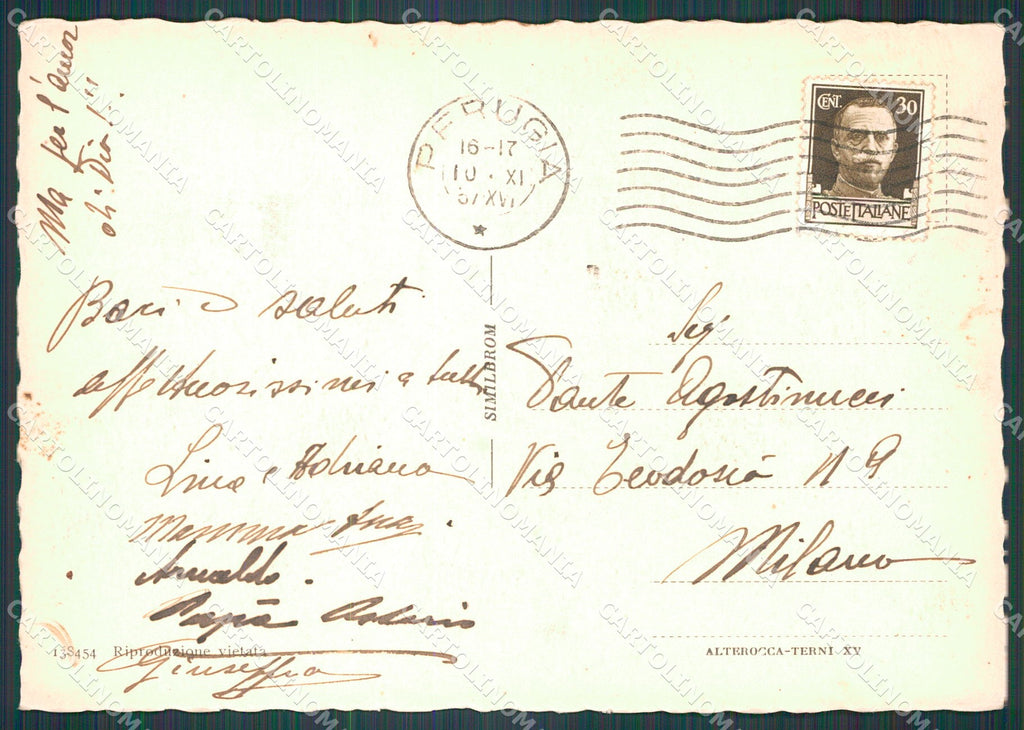 Ma per l'amor
di Dio!!!
PERUGIA
16-17
10·XI
37 XVI
CENT. 30
POSTE ITALIANE
Baci e saluti
affettuosissimi a tutti
Lina e Adriana
Mamma
Arnaldo.
Papà
Giuseppe
SIMILBROM
Sig.
Dante Agostinucci
Via Teodosio N 9
Milano
138454 Riproduzione vietata
ALTEROCCA-TERNI XV
CARTOLINOMANIA